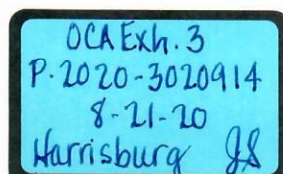 OCA Exh. 3
P-2020-3020914
8-21-20
Harrisburg JS